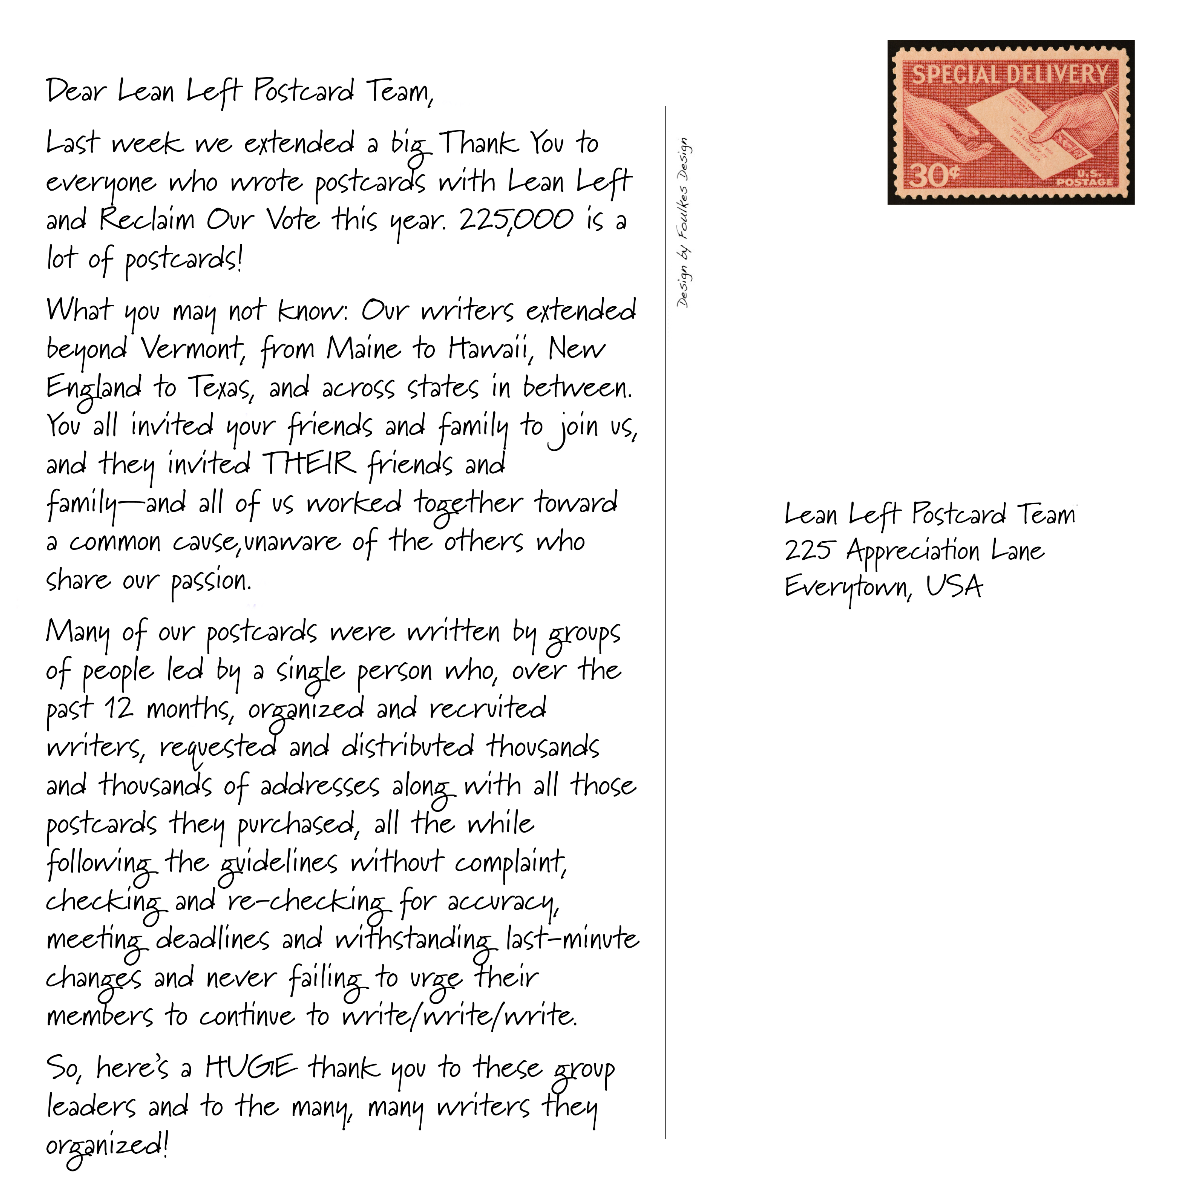 Dear Lean Left Postcard Team,
Last week we extended a big Thank You to
everyone who wrote postcards with Lean Left
and Reclaim Our Vote this year. 225,000 is a
lot of postcards!
What you may not know: Our writers extended
beyond Vermont, from Maine to Hawaii, New
England to Texas, and across states in between.
You all invited your friends and family to join us,
and they invited THEIR friends and
family—and all of us worked together toward
a common cause,unaware of the others who
share our passion.
Many of our postcards were written by groups
of people led by a single person who, over the
past 12 months, organized and recruited
writers, requested and distributed thousands
and thousands of addresses along with all those
postcards they purchased, all the while
following the guidelines without complaint,
checking and re-checking for accuracy,
meeting deadlines and withstanding last-minute
changes and never failing to urge their
members to continue to write/write/write.
So, here's a HUGE thank you to these group
leaders and to the many, many writers they
organized!
Design by Foulkes Design
SPECIAL DELIVERY
30¢
U.S.
POSTAGE
Lean Left Postcard Team
225 Appreciation Lane
Everytown, USA